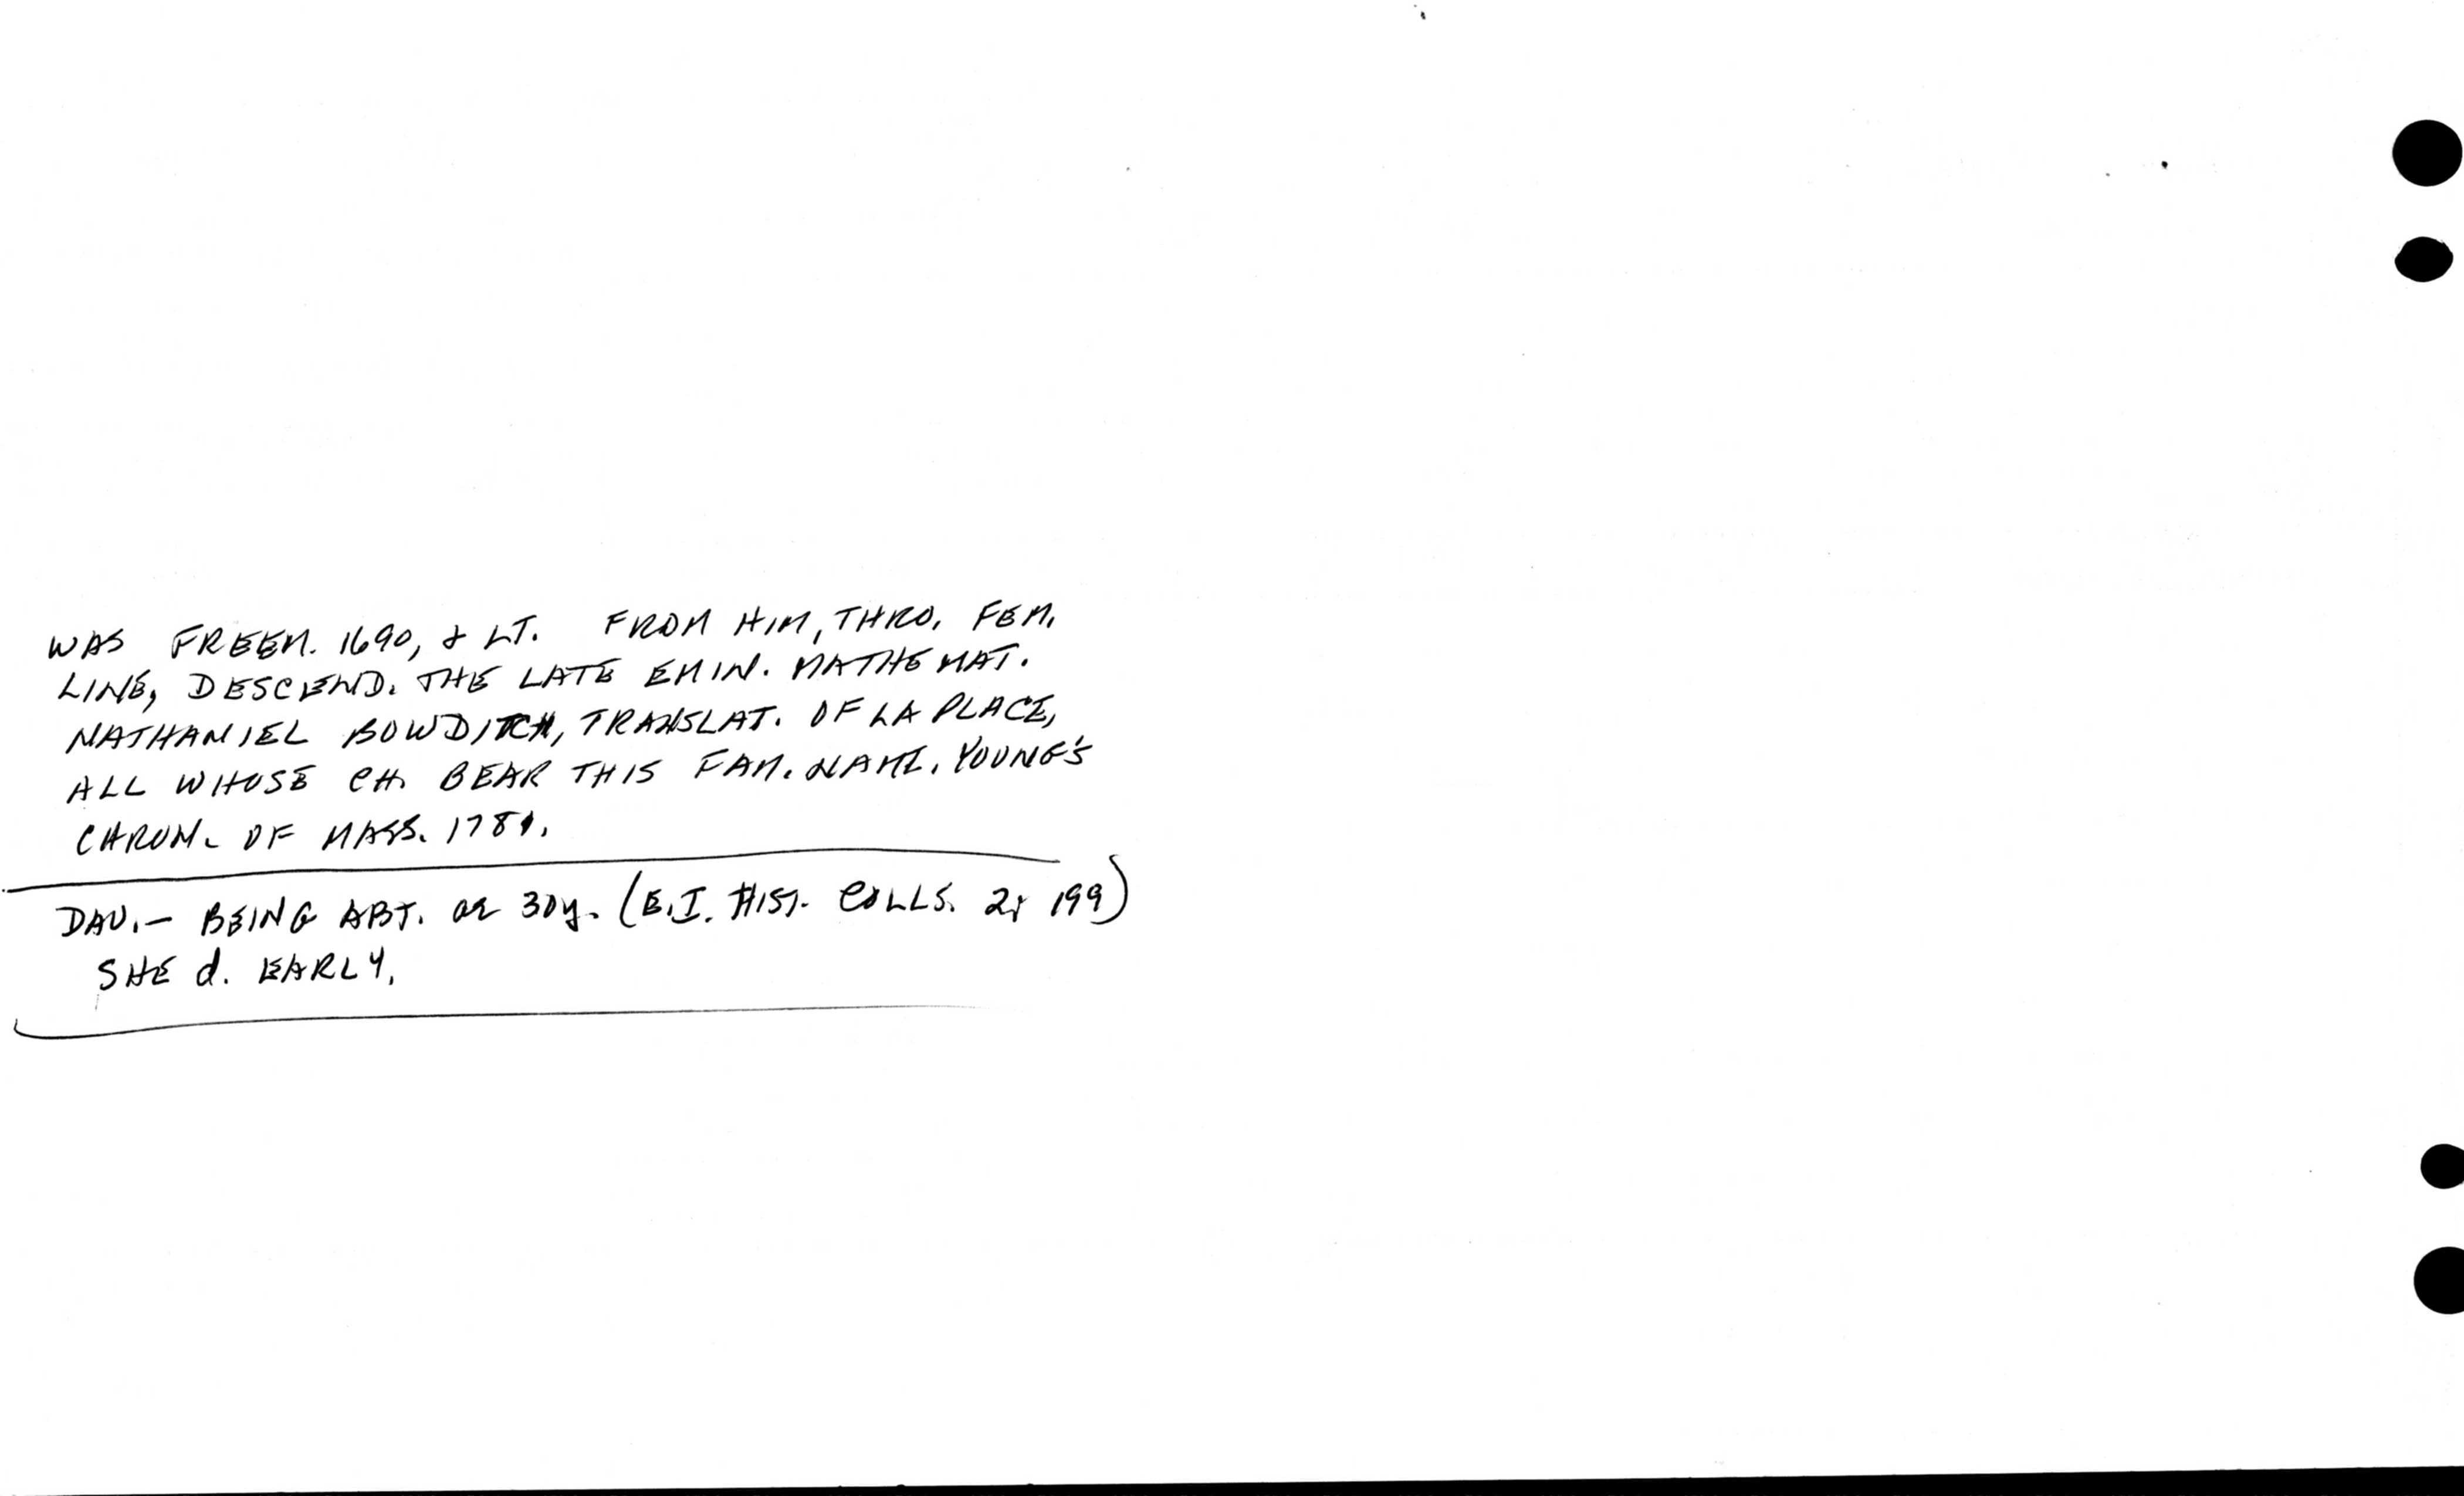 WAS FREEM. 1690, & LT. FROM HIM, THRO, FEM.
LINE, DESCEND. THE LATE EMIN. MATHEMAT.
NATHANIEL BOWDITCH, TRANSLAT. OF LA PLACE,
ALL WHOSE CH. BEAR THIS FAM. NAME. YOUNG'S
CHRON. OF MASS. 178.
DAU.— BEING ABT. 30y. (E.I. HIST. COLLS. 2; 199)
SHE d. EARLY.